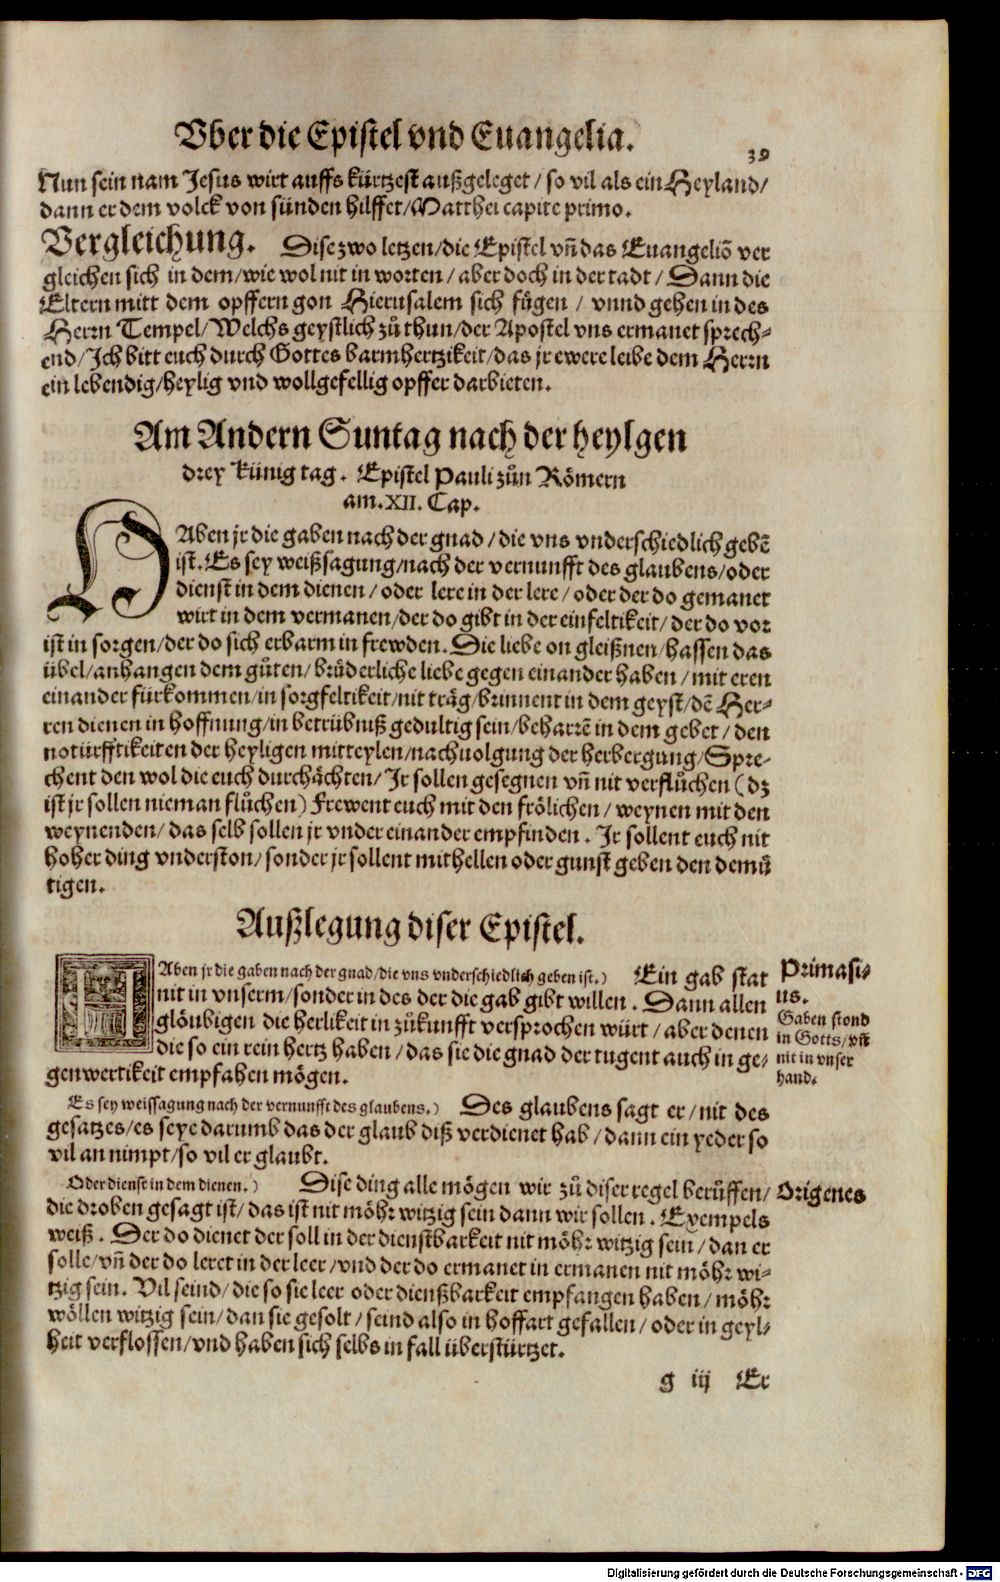 Vber die Epistel vnd Euangelia.
39
Nun sein nam Jesus wirt auffs kürtzest außgeleget / so vil als ein Heyland /
dann er dem volck von sünden hilffet / Matthei capite primo.
Vergleichung. Dise zwo letzen / die Epistel vñ das Euangeliõ ver
gleichen sich in dem / wie wol nit in worten / aber doch in der tadt / Dann die
Eltern mitt dem opffern gon Hierusalem sich fügen / vnnd gehen in des
Herrn Tempel / Welchs geystlich zů thun / der Apostel vns ermanet sprech-
end / Ich bitt euch durch Gottes barmhertzikeit / das jr ewere leibe dem Herrn
ein lebendig / heylig vnd wollgefellig opffer darbieten.
Am Andern Suntag nach der heylgen
drey künig tag. Epistel Pauli zůn Römern
am. XII. Cap.
HAben jr die gaben nach der gnad / die vns vnderschiedlich gebẽ
ist. Es sey weißsagung / nach der vernunfft des glaubens / oder
dienst in dem dienen / oder lere in der lere / oder der do gemanet
wirt in dem vermanen / der do gibt in der einfeltikeit / der do vor
ist in sorgen / der do sich erbarm in frewden. Die liebe on gleißnen / hassen das
übel / anhangen dem gůten / brüderliche liebe gegen einander haben / mit eren
einander fürkommen / in sorgfeltikeit / nit träg / brinnent in dem geyst / dẽ Her-
ren dienen in hoffnung / in betrübniß gedultig sein / beharrẽ in dem gebet / den
notürfftikeiten der heyligen mitteylen / nachuolgung der herbergung / Spre-
chent den wol die euch durchächten / Jr sollen gesegnen vñ nit verflůchen (dz
ist jr sollen nieman flůchen) Frewent euch mit den frölichen / weynen mit den
weynenden / das selb sollen jr vnder einander empfinden. Jr sollent euch nit
hoher ding vnderston / sonder jr sollent mithellen oder gunst geben den demü
tigen.
Außlegung diser Epistel.
HAben jr die gaben nach der gnad / die vns vnderschiedlich geben ist.) Ein gab stat
nit in vnserm / sonder in des der die gab gibt willen. Dann allen
glöubigen die herlikeit in zůkunfft versprochen würt / aber denen
die so ein rein hertz haben / das sie die gnad der tugent auch in ge-
genwertikeit empfahen mögen.
Primasi-
us.
Gaben stond
in Gotts / vñ
nit in vnser
hand.
Es sey weissagung nach der vernunfft des glaubens.) Des glaubens sagt er / nit des
gesatzes / es seye darumb das der glaub diß verdienet hab / dann ein yeder so
vil an nimpt / so vil er glaubt.
Oder dienst in dem dienen.) Dise ding alle mögen wir zů diser regel berůffen /
Origenes
die droben gesagt ist / das ist nit möhr witzig sein dann wir sollen. Exempels
weiß. Der do dienet der soll in der dienstbarkeit nit möhr witzig sein / dan er
solle / vñ der do leret in der leer / vnd der do ermanet in ermanen nit möhr wi-
tzig sein. Vil seind / die so sie leer oder dienßbarkeit empfangen haben / möhr
wöllen witzig sein / dan sie gesolt / seind also in hoffart gefallen / oder in geyl-
heit verflossen / vnd haben sich selbs in fall überstürtzet.
g iij Er
Digitalisierung gefördert durch die Deutsche Forschungsgemeinschaft - DFG